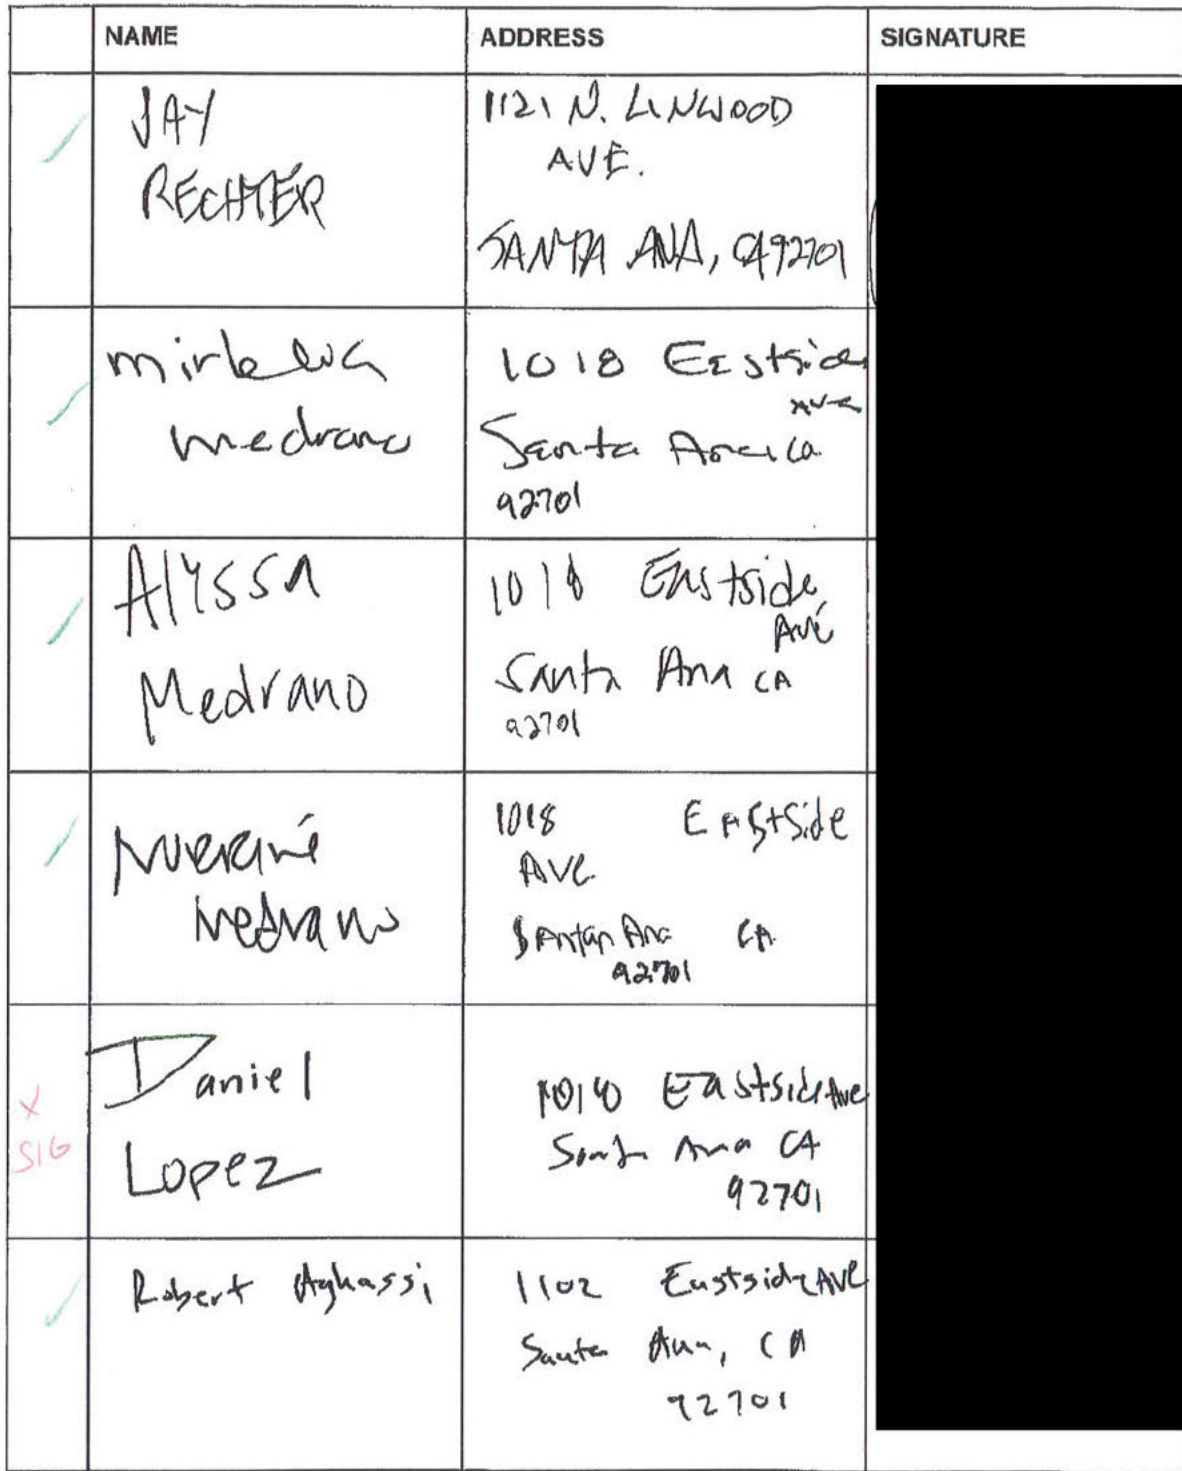 NAME ADDRESS SIGNATURE
JAY
RECHTER
1121 N. LINWOOD
AVE.
SANTA ANA, CA 92701
medrano
1018 Eastside
Ave
Santa Ana, Ca.
92701
Alyssa
Medrano
1018 Eastside
Ave
Santa Ana CA
92701
Medrano
1018 EAstSide
AVE
SAntan Ana CA
92701
X
SIG
Daniel
Lopez
Eastside Ave
Santa Ana CA
92701
Robert Aghassi
1102 Eastside AVE
Santa Ana, CA
92701